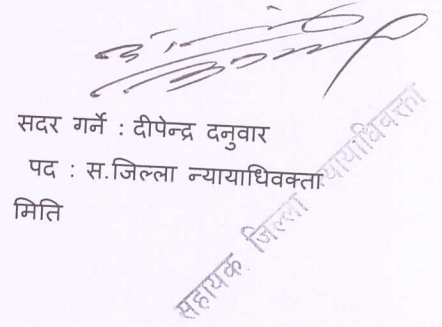 सदर गर्ने : दीपेन्द्र दनुवार
पद : स.जिल्ला न्यायाधिवक्ता
मिति
सहायक जिल्ला न्यायाधिवक्ता